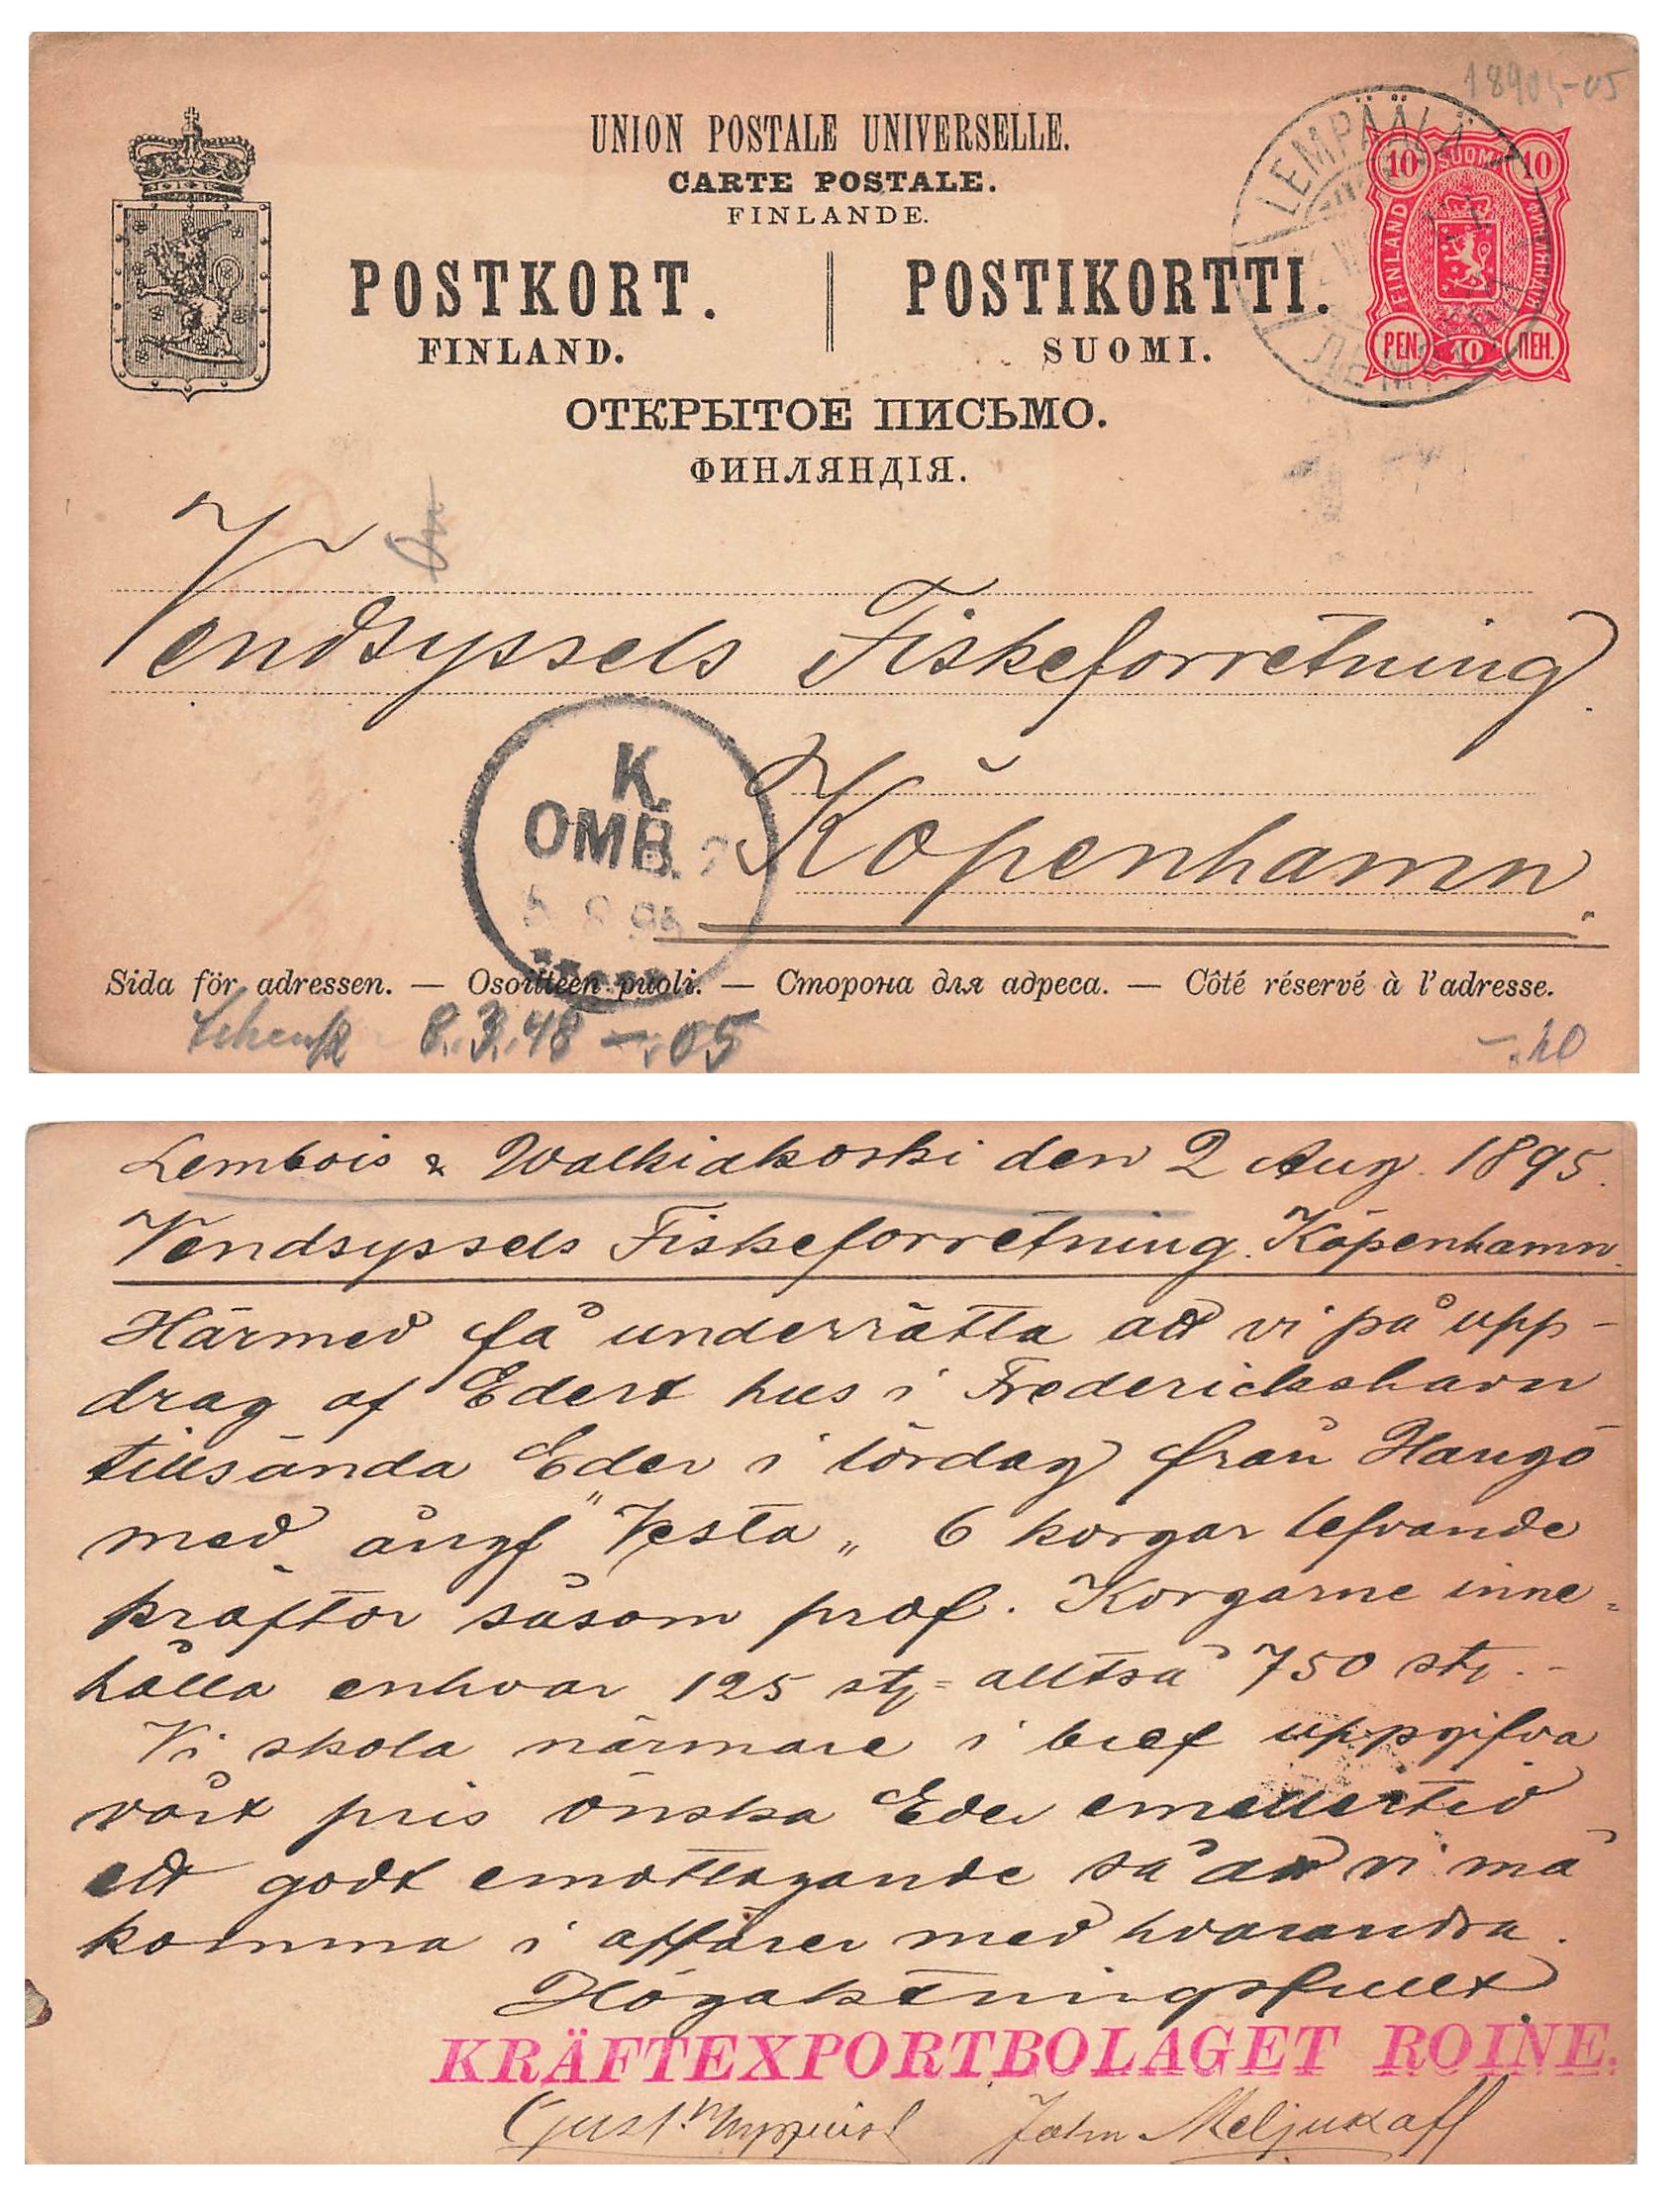 18903-05
UNION POSTALE UNIVERSELLE.
CARTE POSTALE.
FINLANDE.
POSTKORT. POSTIKORTTI.
FINLAND. SUOMI.
ОТКРЫТОЕ ПИСЬМО.
ФИНЛЯНДІЯ.
LEMPÄÄLÄ
10 SUOMI 10
FINLAND
PEN. 10 ПЕН.
Vendsyssels Fiskeforretning
Köpenhamn.
K.
OMB. 2
5 8 95
Sida för adressen. — Osoitteen puoli. — Сторона для адреса. — Côté réservé à l'adresse.
8.3.48 -.05
Lembois & Walkiakoski den 2 Aug. 1895.
Vendsyssels Fiskeforretning. Köpenhamn.
Härmed få underrätta att vi på upp-
drag af Edert hus i Frederickshavn
tillsända Eder i lördag från Hangö
med ångf "Vesta„ 6 korgar lefvande
kräftor såsom prof. Korgarne inne-
hålla enhvar 125 st = alltså 750 st. -
Vi skola närmare i bref uppgifva
vårt pris önska Eder emellertid
ett godt emottagande så att vi må
komma i affärer med hvarandra.
Högaktningsfullt
KRÄFTEXPORTBOLAGET ROINE.
Gust. Nyqvist John Meljukaff